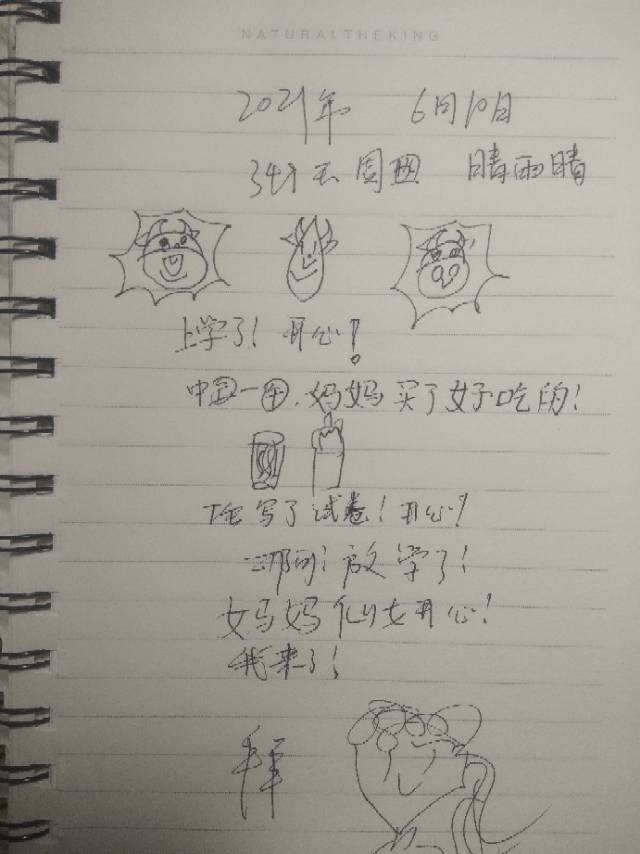 NATURALTHEKING
2021年 6月10日
晴雨晴
上学了! 开心!
中国一 妈妈买了好吃的!
下 写了试卷! 开心!
放学了!
妈妈仙女开心!
我来了!
拜